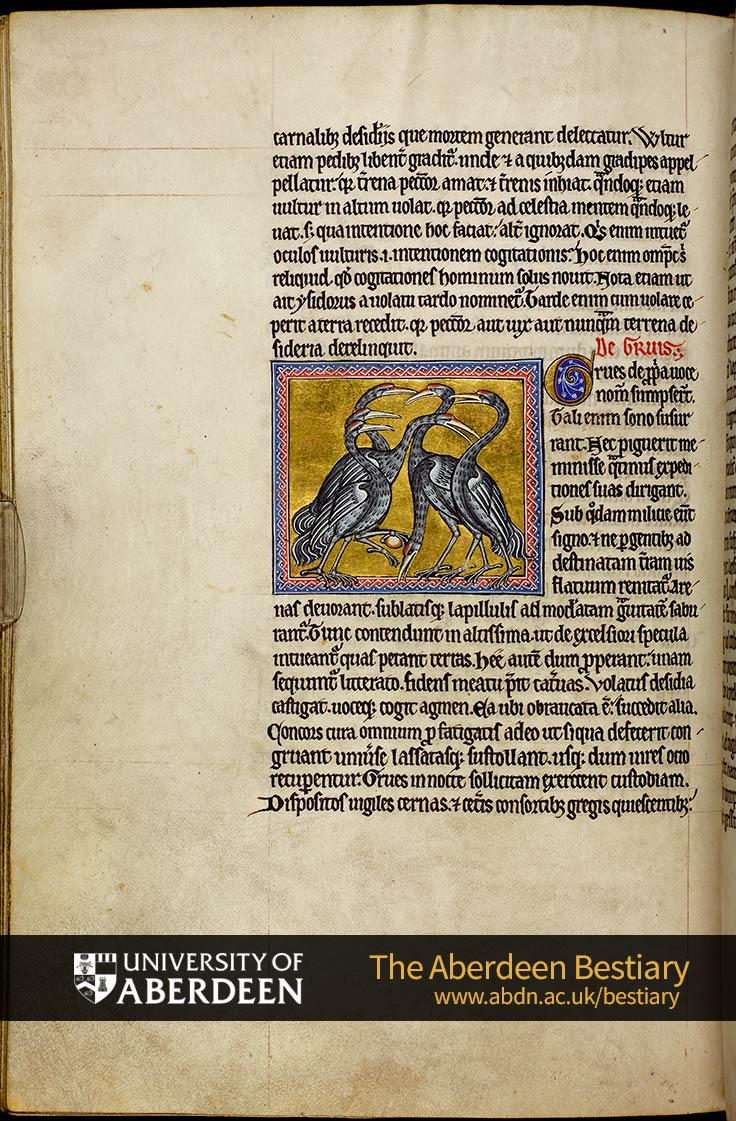 carnalib; desid'iis que mortem generant delectatur. Wltur
etiam pedib; libent' gradit'. unde ⁊ a quib;dam gradipes appel
pellatur. q'r t'rena pecc̄or amat. ⁊ t'renis inhiat. q̄ndoq; etiam
uultur in altum uolat. q'r pecc̄or ad celestia mentem q̄ndoq; le
uat. s; qua intentione hoc faciat. alt' ignorat. Q's enim intuet'
oculos uulturis .i. intentionem cogitationis. hoc enim omp̄s s'
reliquid. q'd cogitationes hominum solus nouit. Nota etiam ut
ait ysidorus a uolatu tardo nominet'. Tarde enim cum uolare ce
perit a terra recedit. q'r pecc̄or aut uix aut nunq̄m terrena de
sideria derelinquit. De Gruis
Grues de p̄pa uoce
nom̄ sumpser̄t.
Tali enim sono susur
rant. Hec piguerit me
minisse q̄tinus expedi
tiones suas dirigant.
Sub q'dam militie eūt
signo. ⁊ ne p̄gentib; ad
destinatam t'ram uis
flatuum renitat' are
nas deuorant. sublatisq; lapillulis ad mod'atam g̃uitatē sabu
rant'. Tunc contendunt in altissima. ut de excelsiori specula
intueant' quas petant terras. Hee autē dum p̄perant. unam
sequunt' litterato. fidens meatu p̄it cat'uas. Volatus desidia
castigat. uoceq; cogit agmen. Ea ubi obraucata ē. succedit alia.
Concors cura omnium p̄ fatigatis adeo ut siqua defecerit con
gruant umūse lassatasq; sustollant. usq; dum uires ocio
recuperentur. Grues in nocte sollicitam exercent custodiam.
Dispositos uigiles cernas. ⁊ cet'is consortib; gregis quiescentib;
UNIVERSITY OF
ABERDEEN
The Aberdeen Bestiary
www.abdn.ac.uk/bestiary